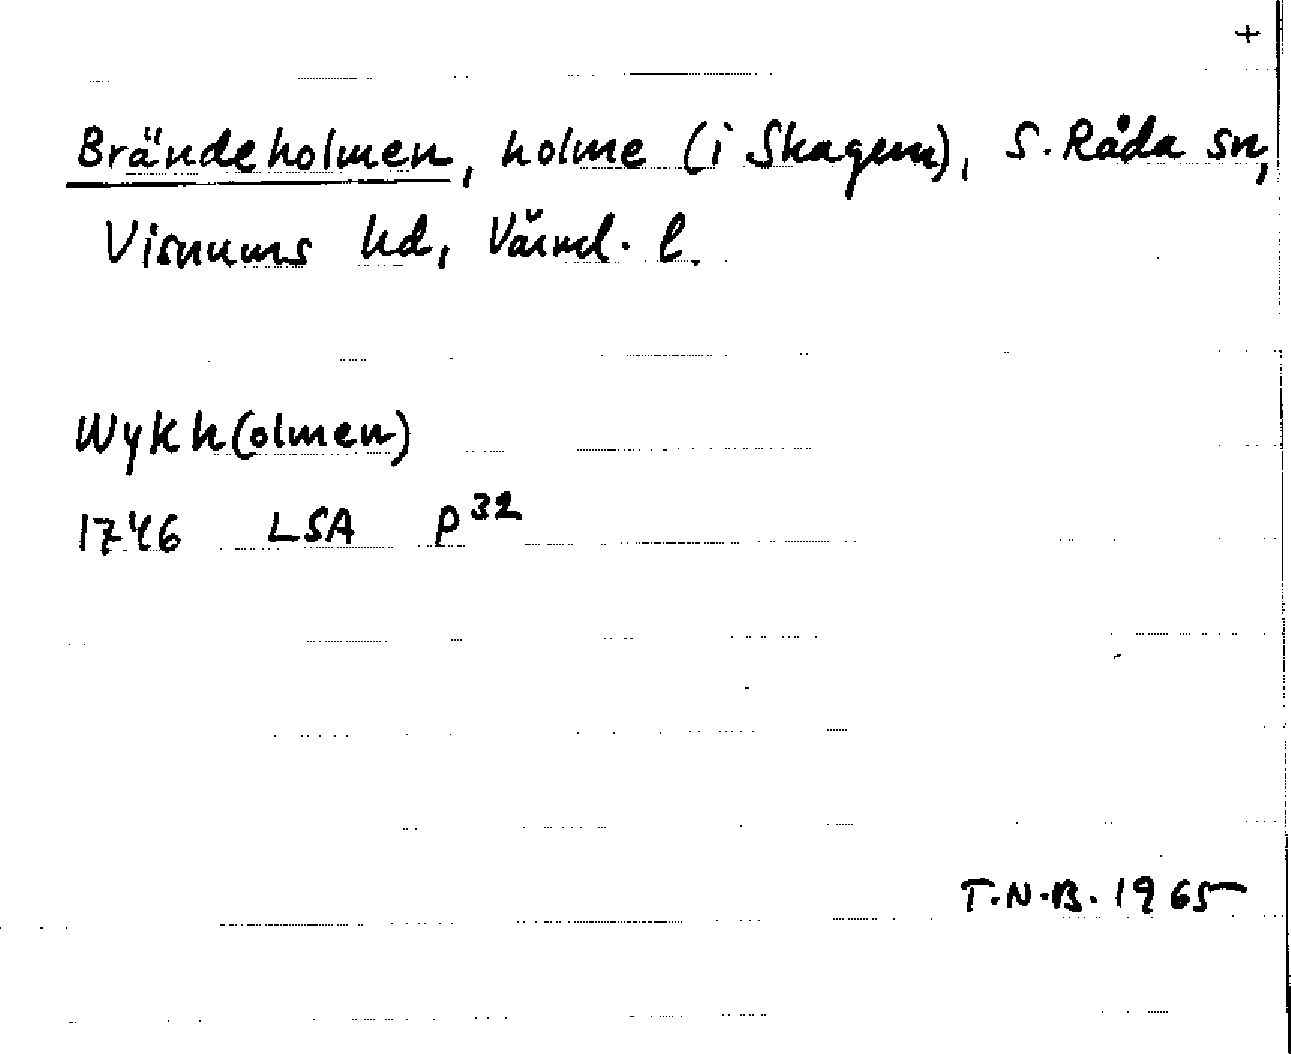 +
Brändeholmen, holme (i Skagern), S. Råda sn,
Visnums hd, Värml. l.
Wykh(olmen)
1746 LSA P32
T.N.B. 1965